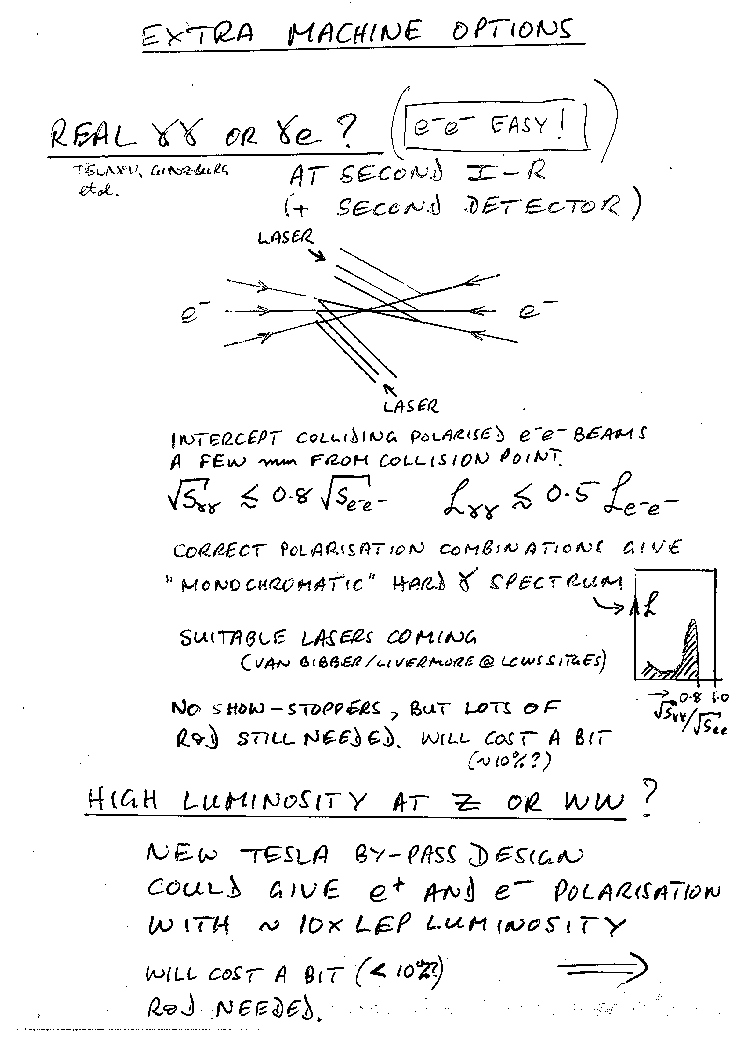 EXTRA MACHINE OPTIONS
REAL γγ OR γe ? (e⁻e⁻ EASY!)
TELNOV, GINZBURG
et al.
AT SECOND I-R
(+ SECOND DETECTOR)
LASER
e⁻ e⁻
LASER
INTERCEPT COLLIDING POLARISED e⁻e⁻ BEAMS
A FEW mm FROM COLLISION POINT.
√Sγγ ≲ 0.8 √Se⁻e⁻ ℒγγ ≲ 0.5 ℒe⁻e⁻
CORRECT POLARISATION COMBINATIONS GIVE
"MONOCHROMATIC" HARD γ SPECTRUM
ℒ
SUITABLE LASERS COMING
(VAN BIBBER/LIVERMORE @ LCWS SITGES)
→ 0.8 1.0
√Sγγ/√See
NO SHOW-STOPPERS, BUT LOTS OF
R&D STILL NEEDED. WILL COST A BIT
(~10%?)
HIGH LUMINOSITY AT Z OR WW ?
NEW TESLA BY-PASS DESIGN
COULD GIVE e⁺ AND e⁻ POLARISATION
WITH ~ 10x LEP LUMINOSITY
WILL COST A BIT (< 10%?) ⟹
R&D NEEDED.